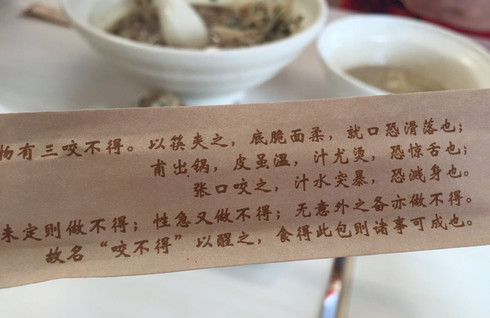 物有三咬不得。以筷夹之,底脆面柔,就口恐滑落也;
甫出锅,皮虽温,汁尤烫,恐惊舌也;
张口咬之,汁水突暴,恐溅身也。
未定则做不得;性急又做不得;无意外之备亦做不得。
故名“咬不得”以醒之,食得此包则诸事可成也。